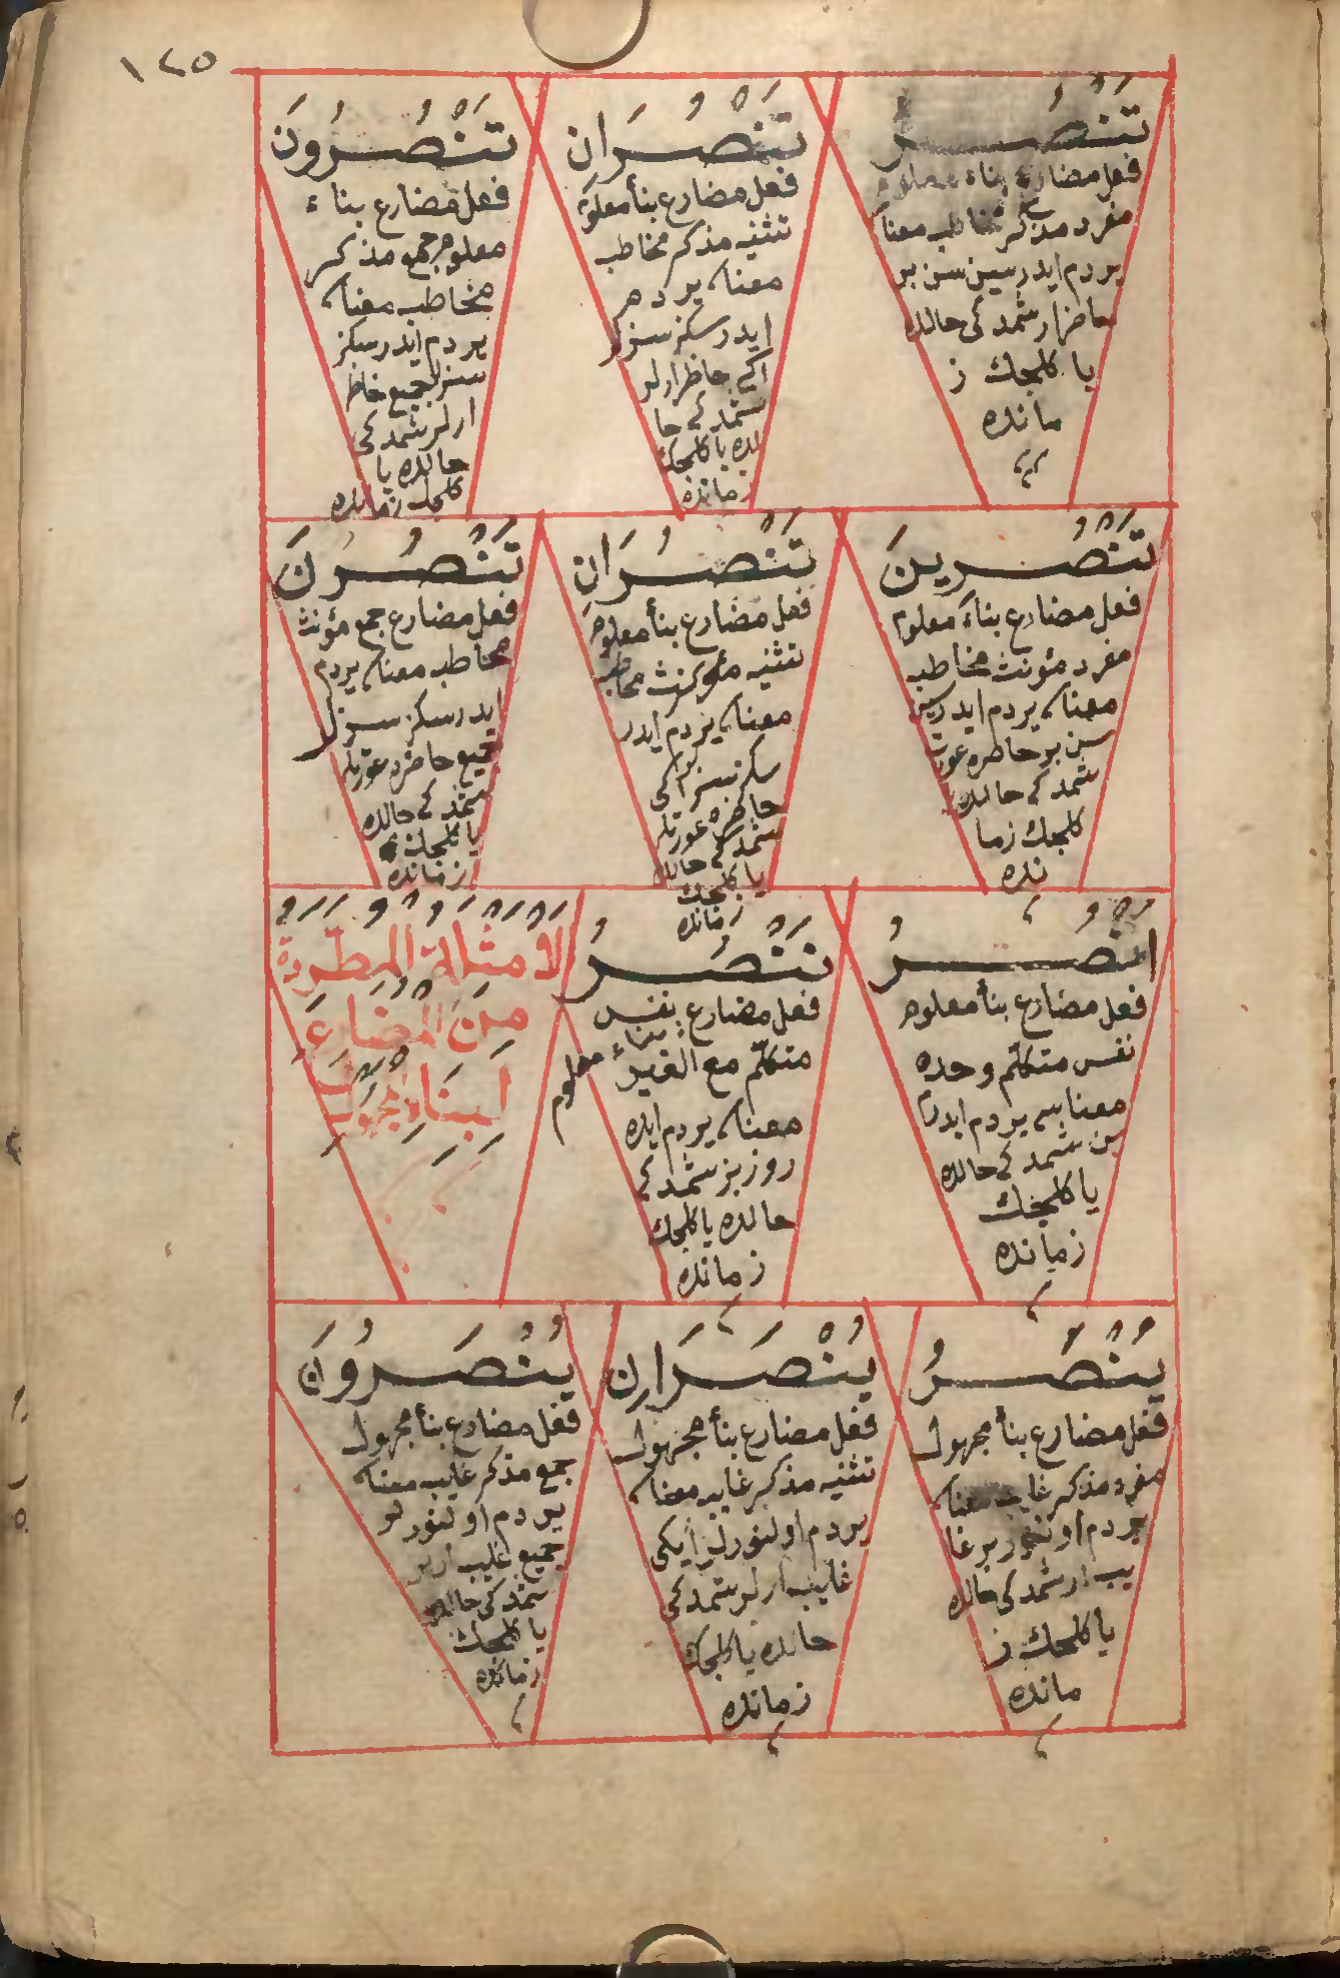 ١٤٥
تَنْصُرُ
فعل مضارع بناء معلوم
مفرد مذكر مخاطب معنا
يردم ايدرسين سن بر
حاضر ار شمدكى حالده
يا كلجك ز
مانده
تَنْصُرَانِ
فعل مضارع بنأ معلوم
تثنيه مذكر مخاطب
معناه يردم
ايدرسكز سزلر
اكى حاظر ارلر
شمدكى حا
لده يا كلجك
زمانده
تَنْصُرُونَ
فعل مضارع بناء
معلوم جمع مذكر
مخاطب معناه
يردم ايدرسكز
سزلر جميع حاظر
ارلر شمدكى
حالده يا
كلجك زمانده
تَنْصُرِينَ
فعل مضارع بناء معلوم
مفرد مؤنث مخاطب
معناه يردم ايدرسن
سن بر حاطره عورت
شمدكى حالده
كلجك زما
نده
تَنْصُرَانِ
فعل مضارع بنأ معلوم
تثنيه مؤنث مخاطب
معناه يردم ايدر
سكز سزلر اكى
حاظره عورتلر
شمدكى حالده
يا كلجك
زمانده
تَنْصُرْنَ
فعل مضارع جمع مؤنث
مخاطب معناه يردم
ايدرسكز سزلر
جميع حاضره عورتلر
شمدكى حالده
يا كلجك
زمانده
اَنْصُرُ
فعل مضارع بنأ معلوم
نفس متكلّم وحده
معناسى يردم ايدرم
بن شمدكى حالده
يا كلجك
زمانده
نَنْصُرُ
فعل مضارع بناء معلوم نفس
متكلّم مع الغير
معناه يردم ايده
روز بز شمدكى
حالده يا كلجك
زمانده
الْاَمْثِلَةُ الْمُطَّرِدَةُ
مِنَ الْمُضَارِعِ
لِبِنَاءِ مَجْهُولٍ
يُنْصَرُ
فعل مضارع بنأ مجهول
مفرد مذكر غايب معناه
يردم اولنور بر غا
يب ار شمدكى حالده
يا كلجك ز
مانده
يُنْصَرَانِ
فعل مضارع بنأ مجهول
تثنيه مذكر غايب معناه
يردم اولنورلر ايكى
غايب ارلر شمدكى
حالده يا كلجك
زمانده
يُنْصَرُونَ
فعل مضارع بنأ مجهول
جمع مذكر غايب معناه
يردم اولنورلر
جميع غايب ارلر
شمدكى حالده
يا كلجك
زمانده